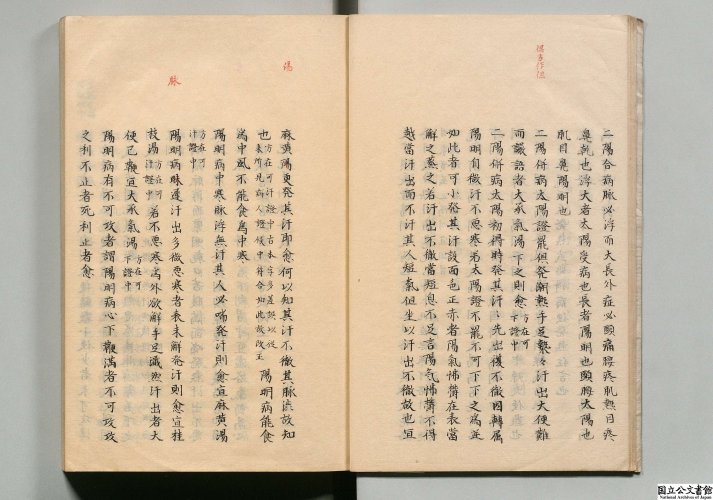 二陽合病脉必浮而大長外症必頭痛腰疼肌熱目疼
鼻乾也浮大者太陽受病也長者陽明也頭腰太陽也
肌目鼻陽明也
二陽併病太陽證罷但発潮熱手足漐々汗出大便難
而譫語者大承氣湯下之則愈方在可下證中
二陽併病太陽初得時発其汗汗先出復不徹因轉属
陽明自微汗不悪寒若太陽證不罷不可下下之為逆
如此者可小発其汗設面色正赤者陽氣怫欝在表當
解之薫之若汗出不徹當短息不足言陽気怫欝不得
越當汗出而不汗其人短氣但坐以汗出不徹故也宜
麻黄湯更発其汗即愈何以知其汗不徹其脉濇故知
也方在可汗證中
陽明病能食
為中風不能食為中寒
陽明病中寒脉浮無汗其人必喘発汗則愈宜麻黄湯
方在可汗中
陽明病脉遅汗出多微悪寒者表未解発汗則愈宜桂
枝湯方在可汗證中若不悪寒為外欲解手足濈然汗出者大
便已鞭宜大承氣湯方在可下證中
陽明病有不可攻者謂陽明病心下鞭満者不可攻攻
之利不止者死利止者愈
湯
脉
国立公文書館
National Archives of Japan